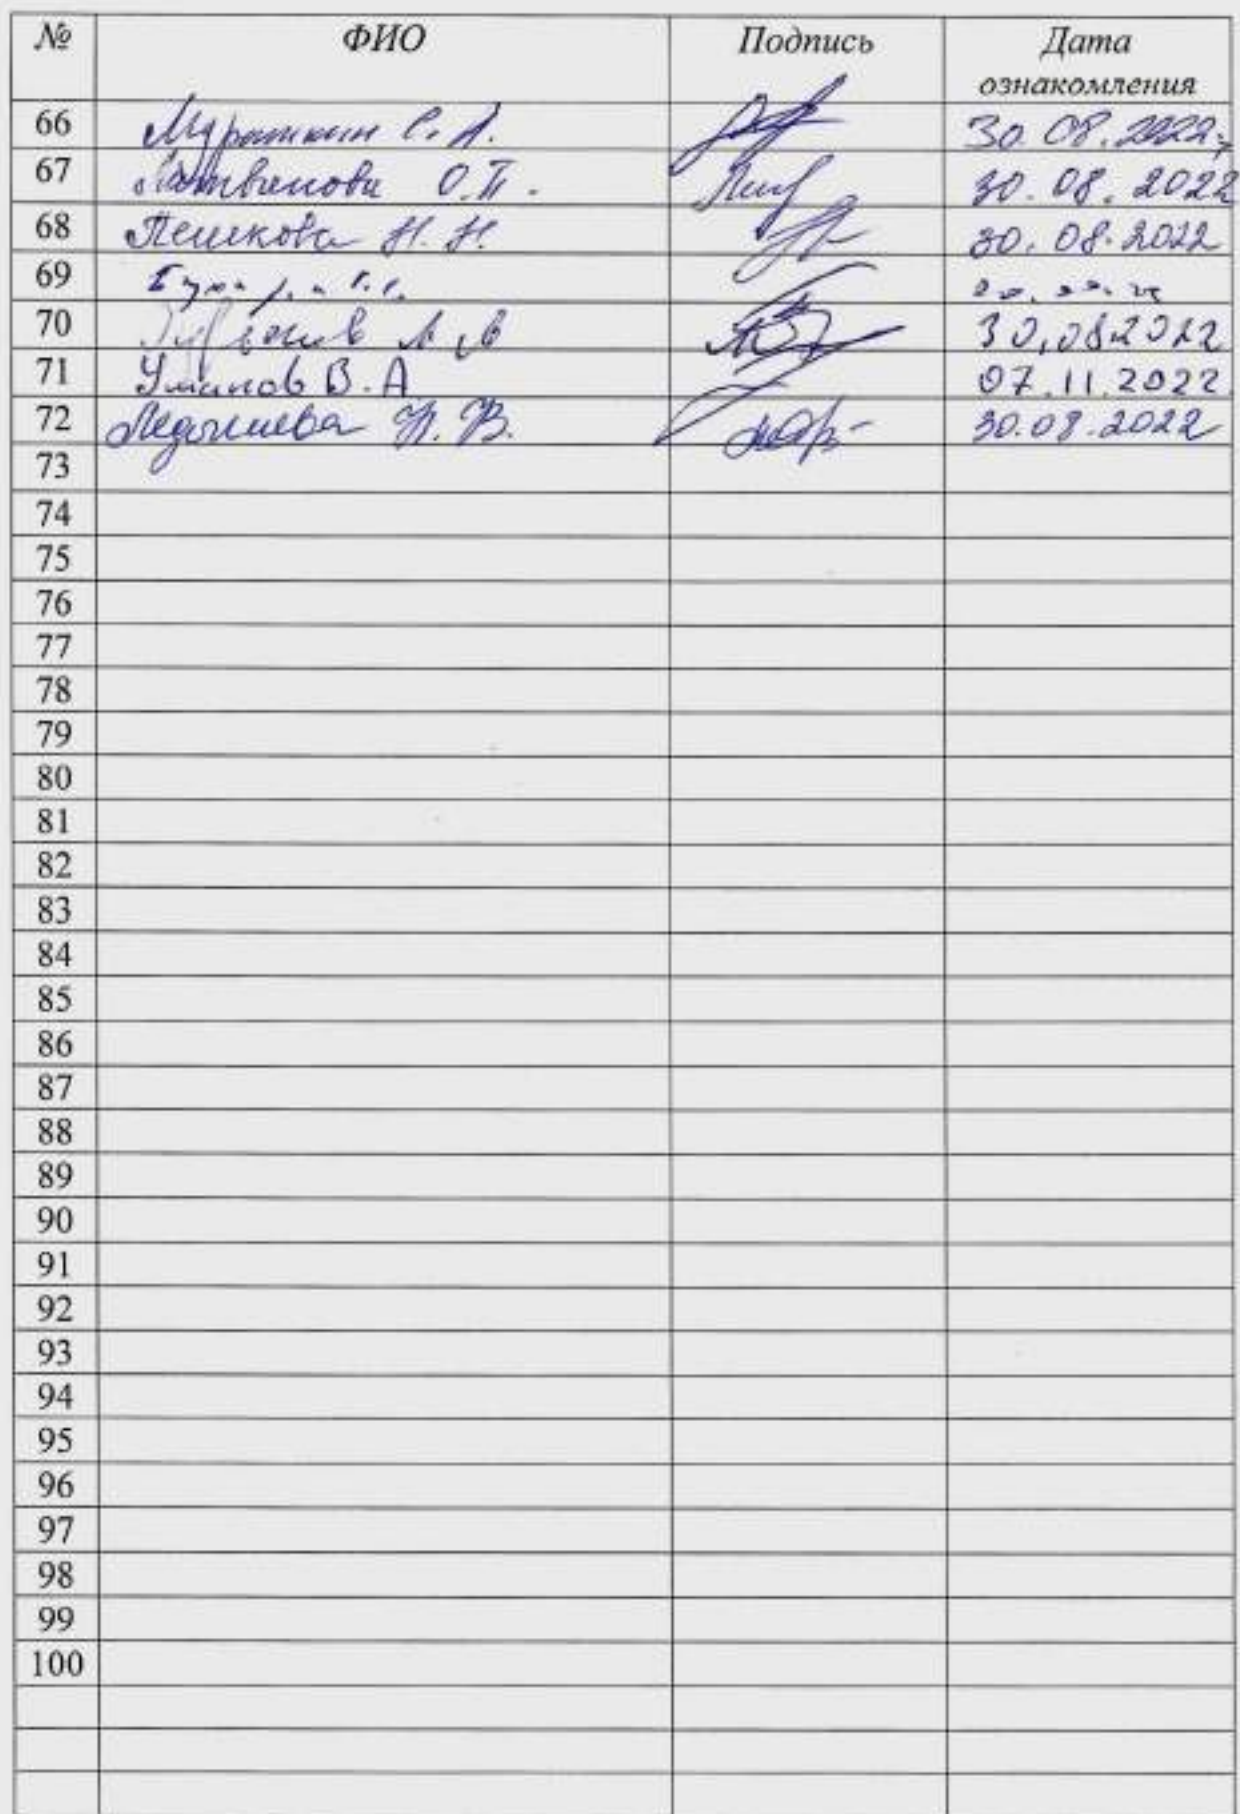 № ФИО Подпись Дата ознакомления
66 Мурашкин С. А. 30.08.2022г
67 О.П. 30.08.2022
68 Пешкова Н. Н. 30.08.2022
69
70 30.08.2022
71 Уманов В. А 07.11.2022
72 Н. В. 30.08.2022
73
74
75
76
77
78
79
80
81
82
83
84
85
86
87
88
89
90
91
92
93
94
95
96
97
98
99
100